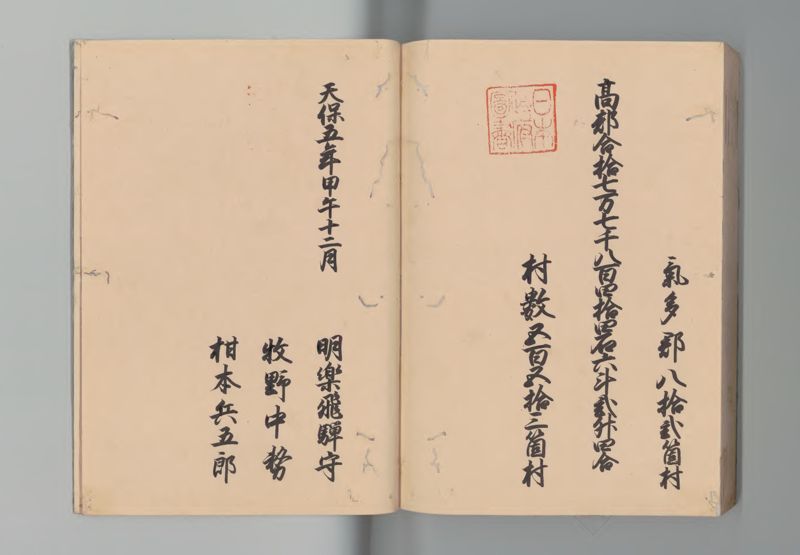 氣多郡八拾弐箇村
高都合拾七万七千八百四拾四石六斗弐升四合
村数五百五拾三箇村
日本政府図書
天保五年甲午十二月
明樂飛驒守
牧野中務
柑本兵五郎